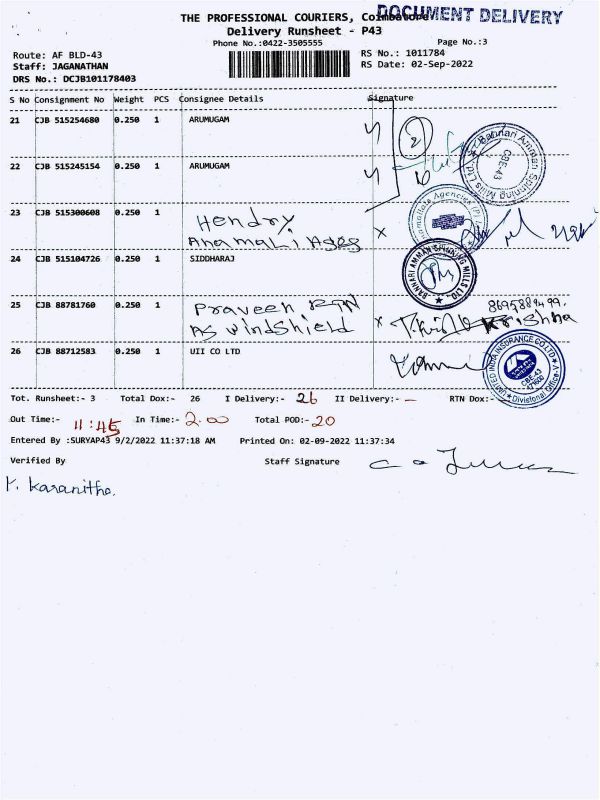 THE PROFESSIONAL COURIERS, Coimbatore
DOCUMENT DELIVERY
Delivery Runsheet - P43
Phone No.:0422-3505555
Page No.:3
Route: AF BLD-43
RS No.: 1011784
Staff: JAGANATHAN
RS Date: 02-Sep-2022
DRS No.: DCJB101178403
S No Consignment No Weight PCS Consignee Details Signature
21 CJB 515254680 0.250 1 ARUMUGAM
22 CJB 515245154 0.250 1 ARUMUGAM
Bannari Amman Spinning Mills Ltd. CBE-43
23 CJB 515300608 0.250 1 Hendry
x
24 CJB 515104726 0.250 1 SIDDHARAJ
BANNARI AMMAN SPINNING MILLS LTD.
25 CJB 88781760 0.250 1 Praveen
As Windshield x Krishna
26 CJB 88712583 0.250 1 UII CO LTD
UNITED INDIA INSURANCE CO LTD Divisional Office-V CBE-43
Tot. Runsheet:- 3 Total Dox:- 26 I Delivery:- 26 II Delivery:- — RTN Dox:-
Out Time:- 11:45 In Time:- 2.00 Total POD:- 20
Entered By :SURYAP43 9/2/2022 11:37:18 AM Printed On: 02-09-2022 11:37:34
Verified By Staff Signature